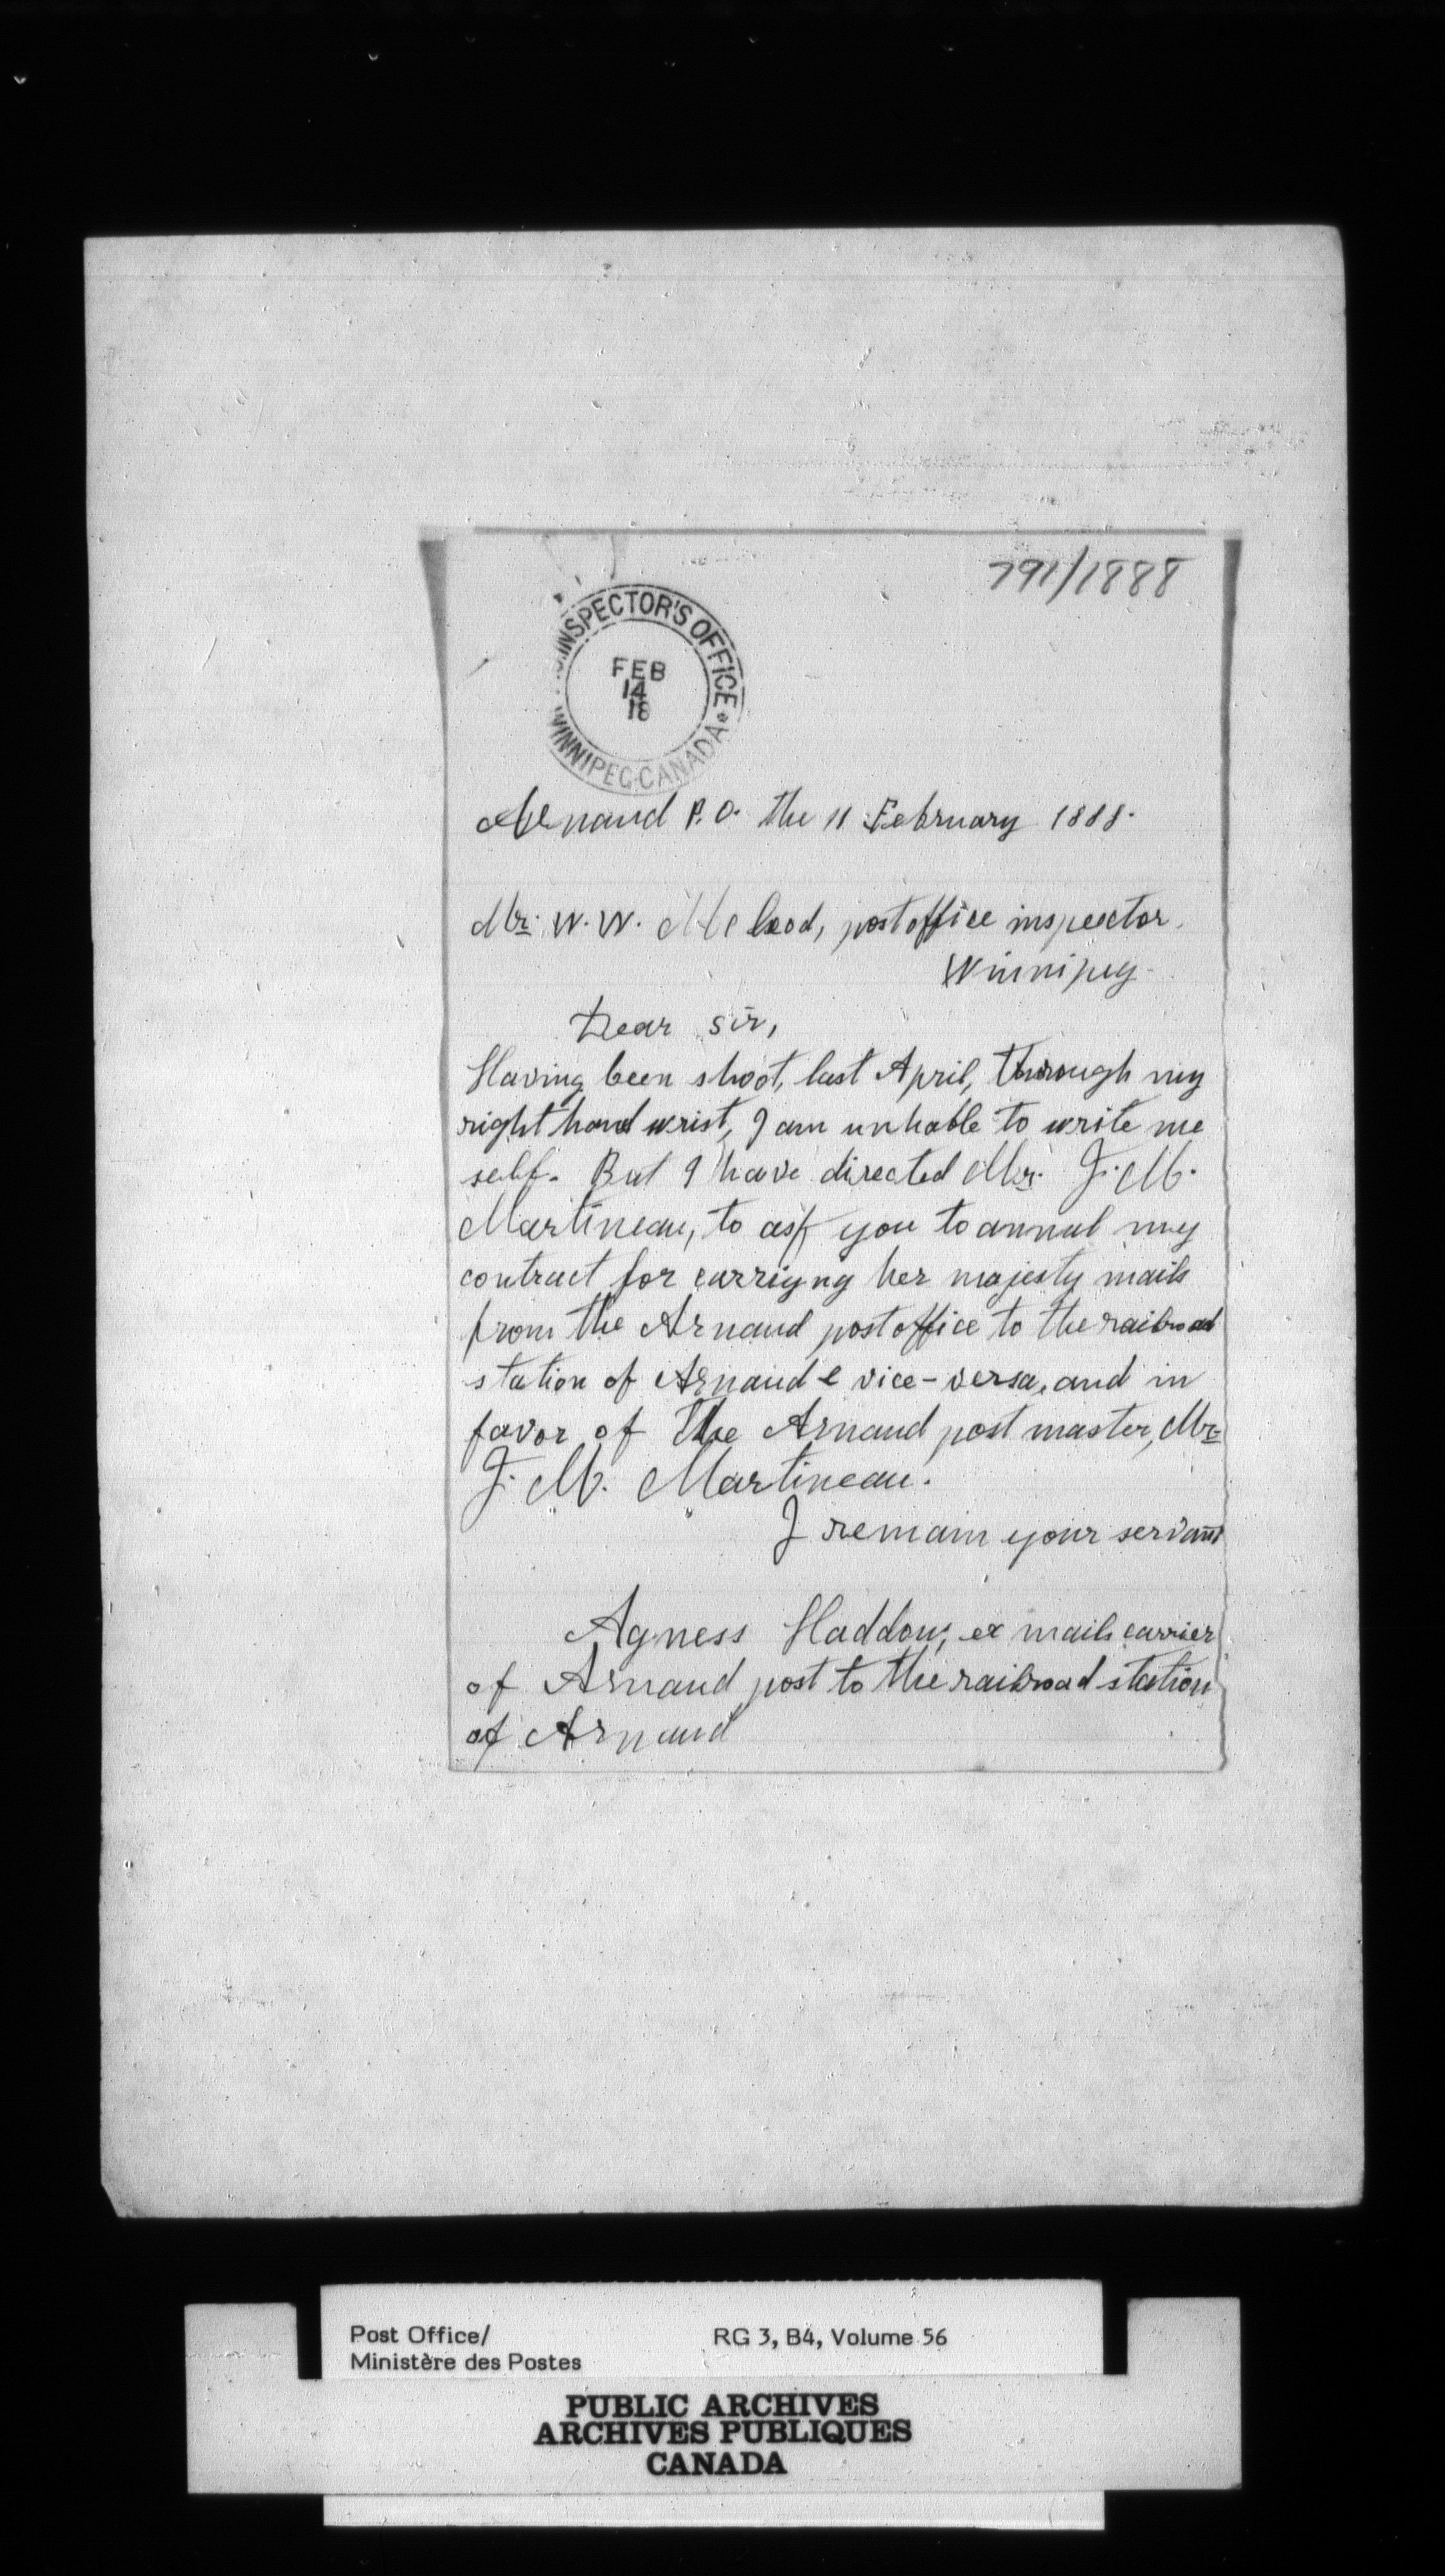 791/1888
P.O. INSPECTOR'S OFFICE
FEB
14
18
WINNIPEG CANADA
Arnaud P.O. the 11 February 1888.
Mr. W. W. McLeod, post office inspector.
Winnipeg.
Dear sir,
Having been shoot, last April, through my
right hand wrist, I am unhable to write me
self. But I have directed Mr. J. M.
Martineau, to ask you to annul my
contract for carriyng her majesty mails
from the Arnaud post office to the railroad
station of Arnaud & vice-versa, and in
favor of the Arnaud post master, Mr.
J. M. Martineau.
I remain your servant
Agness Haddow, ex mails carrier
of Arnaud post to the railroad station
of Arnaud
Post Office/
Ministère des Postes
RG 3, B4, Volume 56
PUBLIC ARCHIVES
ARCHIVES PUBLIQUES
CANADA